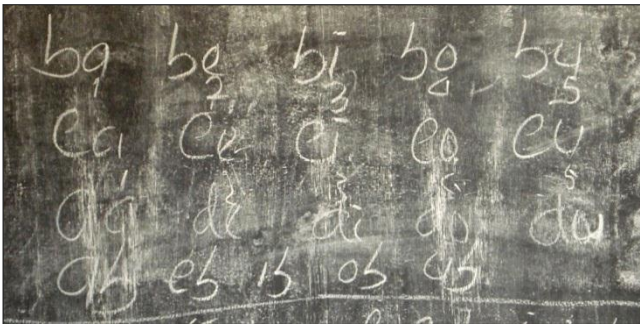 ba be bi bo bu
1 2 3 4 5
ca ce ci co cu
da de di do du
ab eb ib ob ub